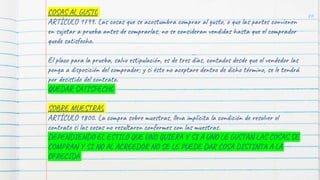 COSAS AL GUSTO
ARTÍCULO 1799. Las cosas que se acostumbra comprar al gusto, o que las partes convienen
en sujetar a prueba antes de comprarlas, no se consideran vendidas hasta que el comprador
quede satisfecho.
El plazo para la prueba, salvo estipulación, es de tres días, contados desde que el vendedor las
ponga a disposición del comprador; y si éste no aceptare dentro de dicho término, se le tendrá
por desistido del contrato.
QUEDAR SATISFECHO
SOBRE MUESTRAS
ARTÍCULO 1800. La compra sobre muestras, lleva implícita la condición de resolver el
contrato si las cosas no resultaren conformes con las muestras.
DEPENDIENDO EL ESTILO QUE UNO QUIERA Y SI A UNO LE GUSTAN LAS COSAS SE
COMPRAN Y SI NO AL ACREEDOR NO SE LE PUEDE DAR COSA DISTINTA A LA
OFRECIDA